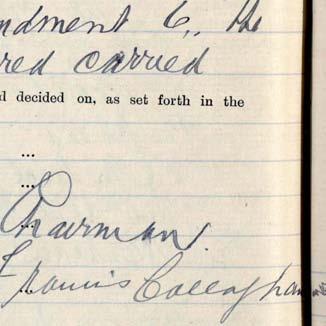 ndment 6,, the
red carried
d decided on, as set forth in the
...
...
Chairman.
Francis Callaghan